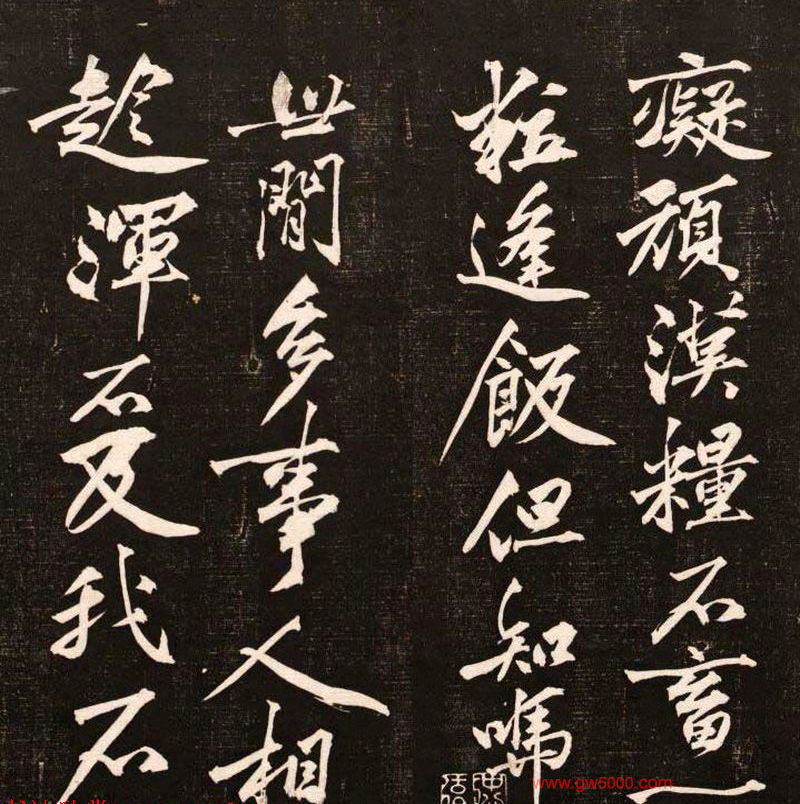 癡頑漢糧不畜一
粒逢飯但知嗎
世閒多事人相
趁渾不及我不
www.gw5000.com